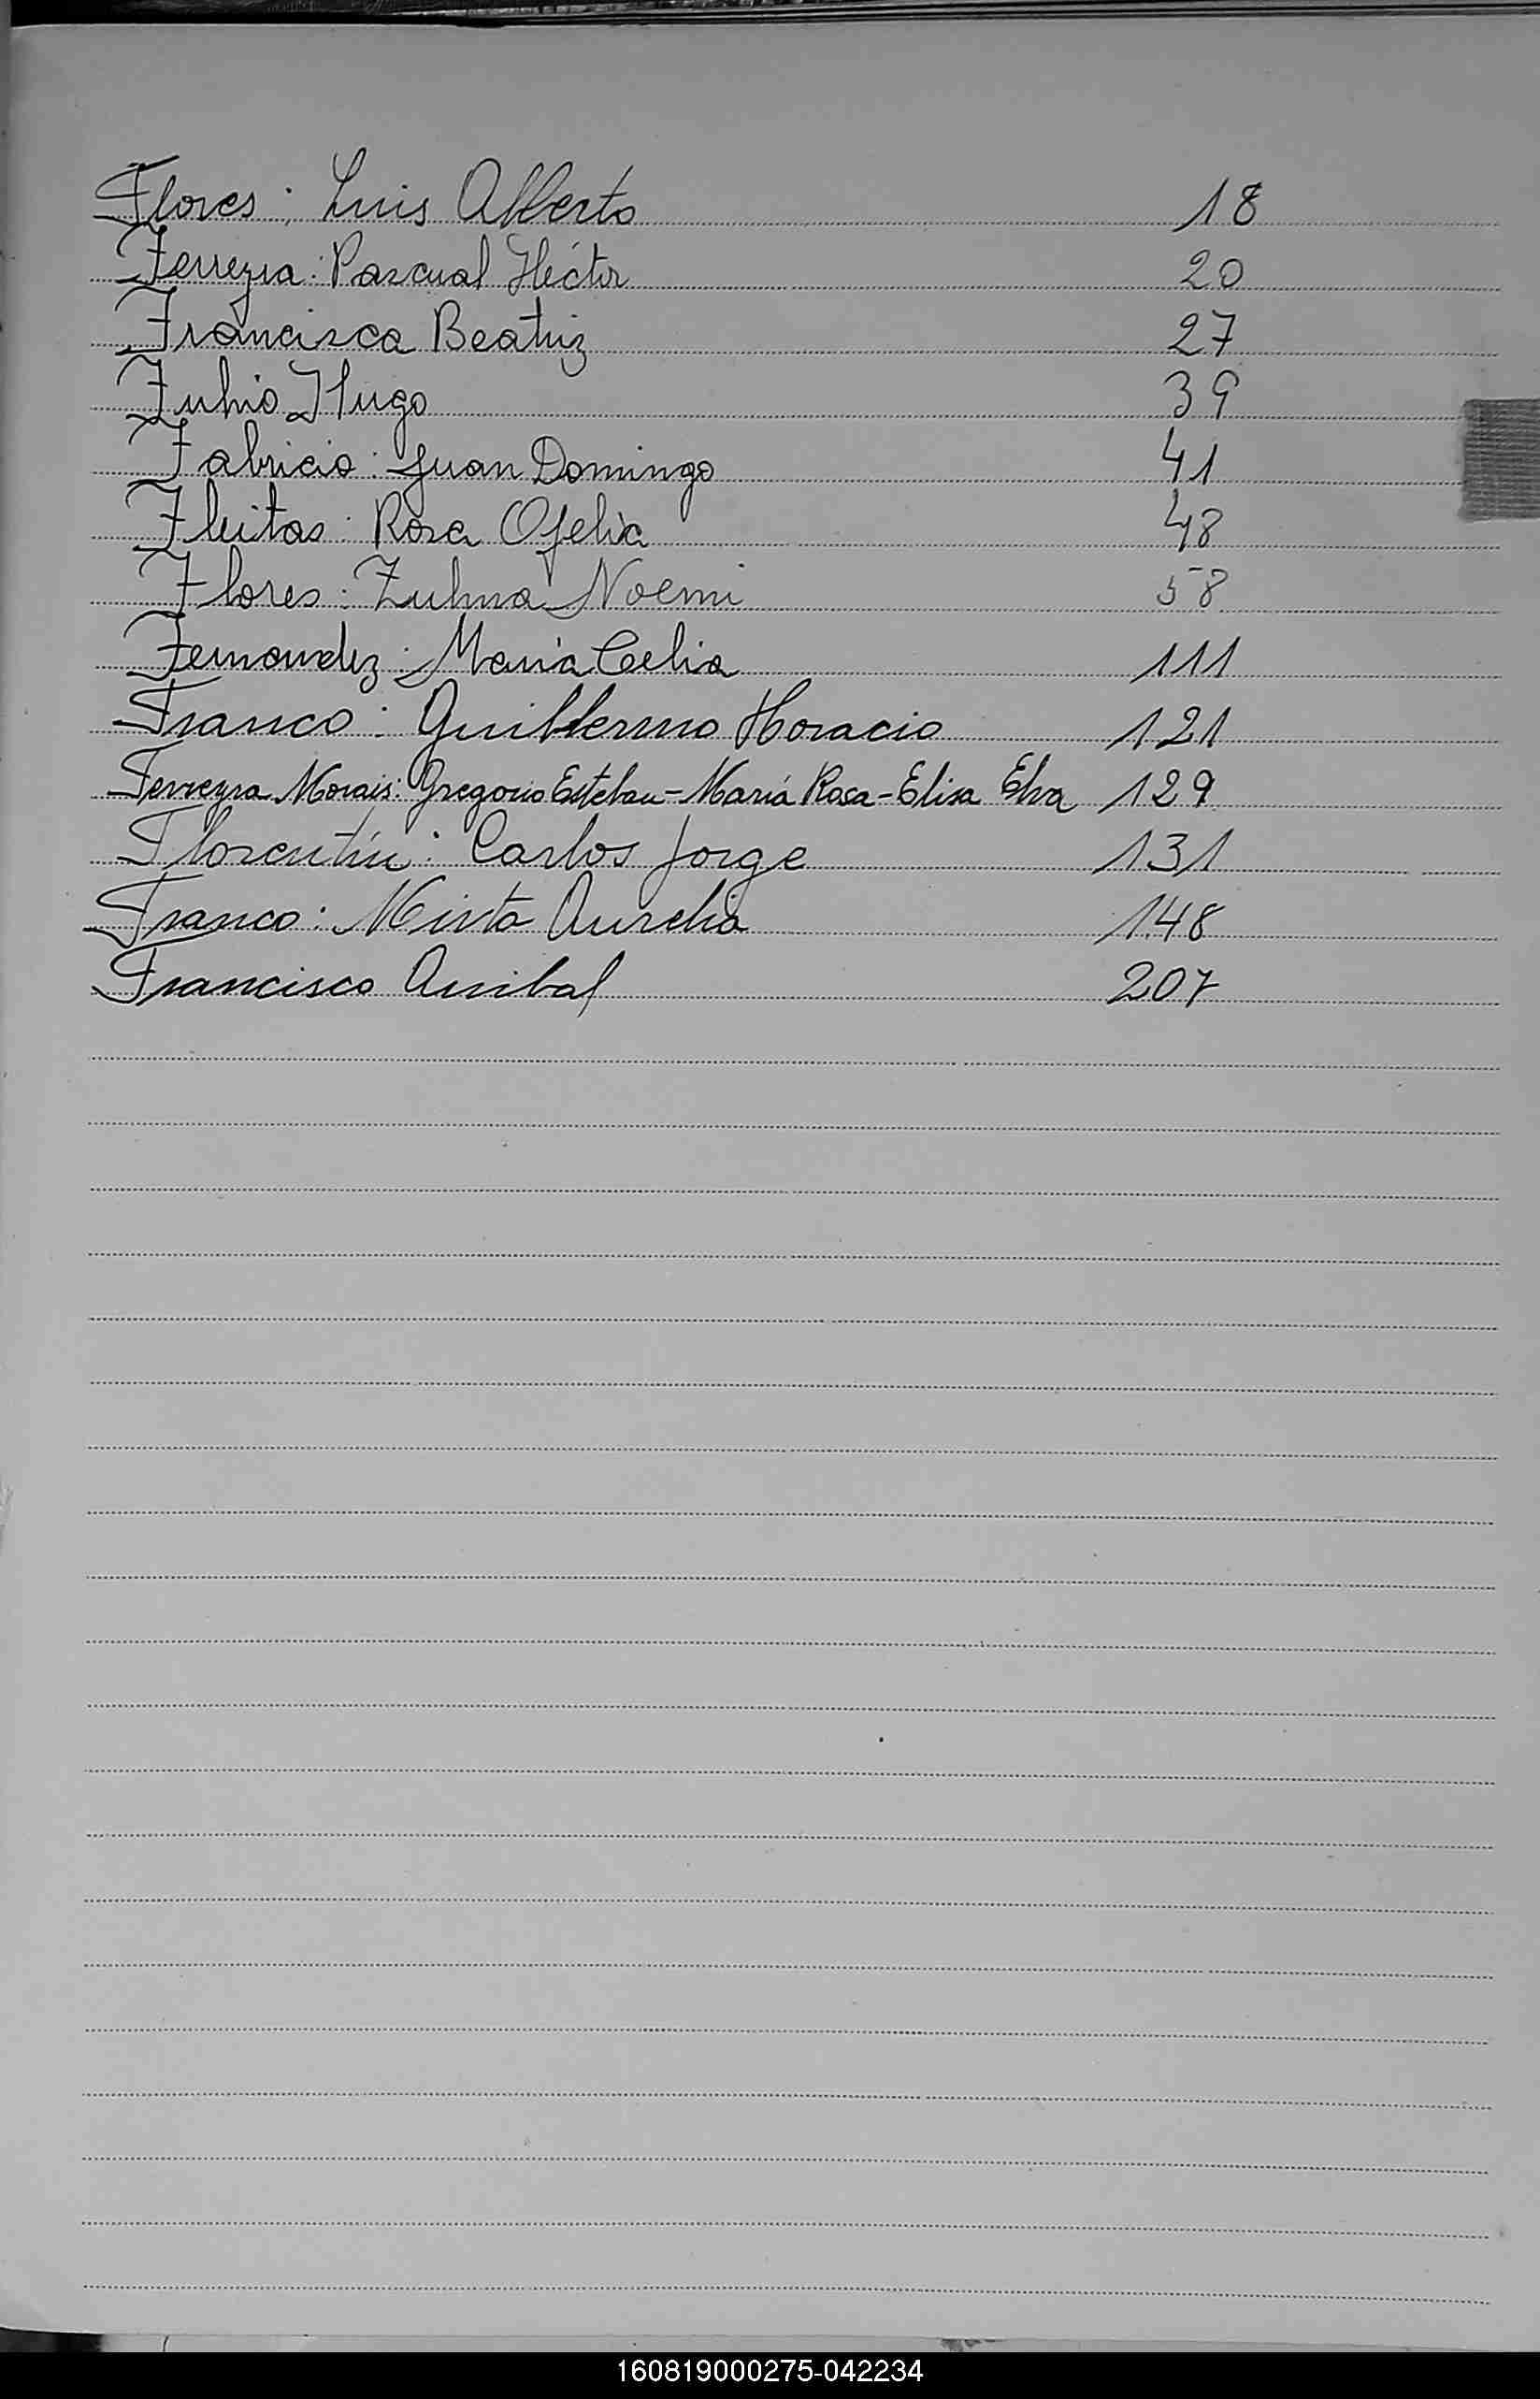 Flores: Luis Alberto 18
Ferreyra: Pascual Héctor 20
Francisca Beatriz 27
Julio Hugo 39
Fabricio: Juan Domingo 41
Fleitas: Rosa Ofelia 48
Flores: Zulma Noemi 58
Fernandez: María Celia 111
Franco: Guillermo Horacio 121
Ferreyra Morais: Gregorio Esteban - María Rosa - Elisa Elva 129
Florentín: Carlos Jorge 131
Franco: Mirta Aurelia 148
Francisco Anibal 207
160819000275-042234